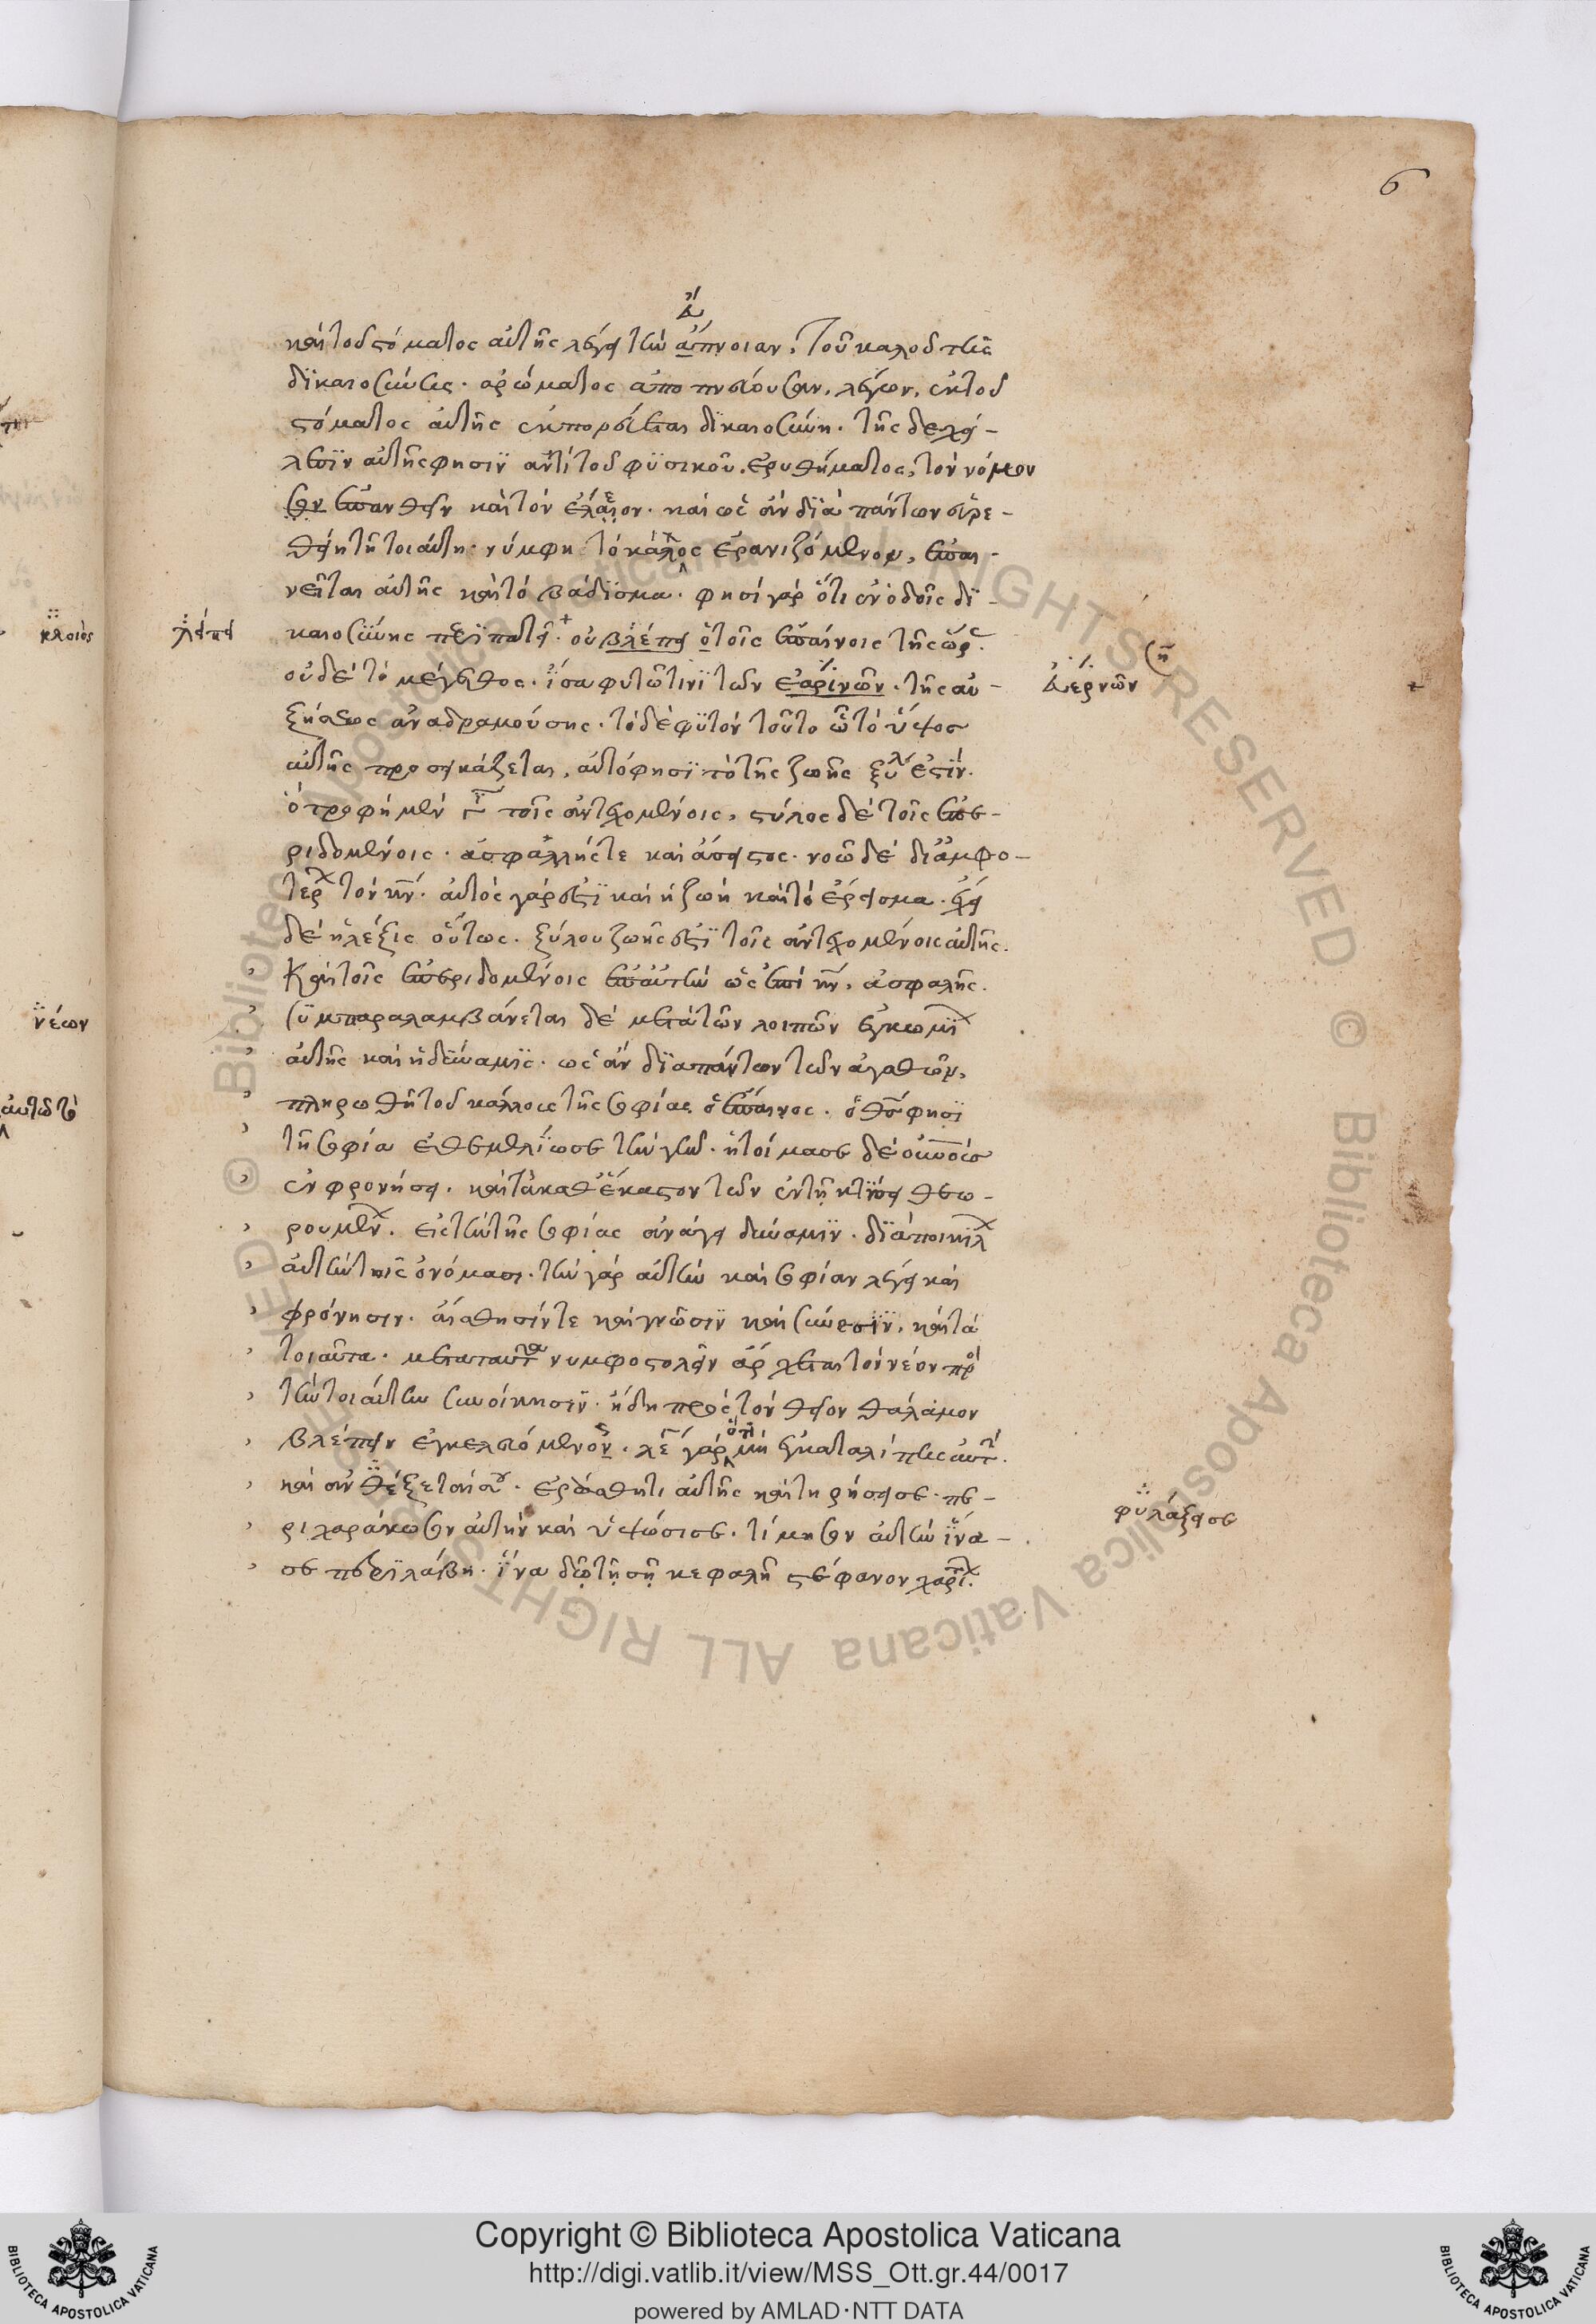 6
καὶ τοῦ στόματος αὐτῆς λέγει τὴν ἄπνοιαν, τοῦ καλοῦ τῆς
δικαιοσύνης ἀρώματος ἀποπνέουσαν, λέγων, ἐκ τοῦ
στόματος αὐτῆς ἐκπορεύεται δικαιοσύνη. τῆς δὲ χει-
λέων αὐτῆς φησιν ἀντὶ τοῦ φυσικοῦ ἐρυθήματος, τὸν νόμον
ἐπανθεῖν καὶ τὸν ἔλεον. καὶ ὡς ἂν διὰ πάντων εὑρε-
θείη τῇ τοιαύτῃ νύμφῃ τὸ κάλλος ἐρανιζόμενον, ἐπαι-
νεῖται αὐτῆς καὶ τὸ βάδισμα. φησὶ γὰρ ὅτι ἐν ὁδοῖς δι-
λείπει
καιοσύνης περιπατεῖ. οὐ βλέπει ὁ τοῖς ἐπαίνοις τῆς ὥρας
οὐδὲ τὸ μέγεθος. ἴσα φυτῷ τινι τῶν ἐαρινῶν. τῆς αὐ-
ξήσεως ἀναδραμούσης. τὸ δὲ φυτὸν τοῦτο ᾧ τὸ ὕψος
αὐτῆς προσεικάζεται, αὐτό φησι τὸ τῆς ζωῆς ξύλον ἐστίν.
ὃ τροφὴ μὲν τοῖς ἀντεχομένοις, στύλος δὲ τοῖς ἐπε-
ριδομένοις. ἀσφαλής τε καὶ ἄσειστος. νοῶ δὲ δι' ἀμφο-
τέρων τὸν κν. αὐτὸς γάρ ἐστι καὶ ἡ ζωὴ καὶ τὸ ἔρεισμα. ἔχει
δὲ ἡ λέξις οὕτως. ξύλον ζωῆς ἐστι τοῖς ἀντεχομένοις αὐτῆς.
Καὶ τοῖς ἐπεριδομένοις ἐπ' αὐτὴν ὡς ἐπὶ κν, ἀσφαλής.
συμπαραλαμβάνεται δὲ μετὰ τῶν λοιπῶν ἐγκωμίων
αὐτῆς καὶ ἡ δύναμις. ὡς ἂν διὰ πάντων τῶν ἀγαθῶν,
πληρωθῇ τοῦ κάλλους τῆς σοφίας ὁ ἔπαινος. ὁ θς φησι
τῇ σοφίᾳ ἐθεμελίωσε τὴν γῆν. ἡτοίμασε δὲ οὐνοὺς
ἐν φρονήσει. καὶ τὰ καθ' ἕκαστον τῶν ἐν τῇ κτίσει θεω-
ρουμένων. εἰς τὴν τῆς σοφίας ἀνάγει δύναμιν. διαποικίλλων
αὐτὴν τοῖς ὀνόμασι. τὴν γὰρ αὐτὴν καὶ σοφίαν λέγει καὶ
φρόνησιν. αἴσθησίν τε καὶ γνῶσιν καὶ σύνεσιν, καὶ τὰ
τοιαῦτα. μετὰ ταῦτα νυμφοστολεῖν ἄρχεται τὸν νέον πρὸς
τὴν τοιαύτην συνοίκησιν. ἤδη πρὸς τὸν θεῖον θάλαμον
βλέπειν ἐγκελευόμενος. λέγει γὰρ ὅτι μὴ ἐγκαταλίπῃς αὐτὴν.
καὶ ἀνθέξεταί σου. ἐράσθητι αὐτῆς καὶ τηρήσει σε. πε-
φυλάξει σε
ριχαράκωσον αὐτὴν καὶ ὑψώσει σε. τίμησον αὐτὴν ἵνα
σε περιλάβῃ. ἵνα δῷ τῇ σῇ κεφαλῇ στέφανον χαρίτων.
κλοιὸς
νέων
Copyright © Biblioteca Apostolica Vaticana
http://digi.vatlib.it/view/MSS_Ott.gr.44/0017
powered by AMLAD·NTT DATA
BIBLIOTECA APOSTOLICA VATICANA
BIBLIOTECA APOSTOLICA VATICANA